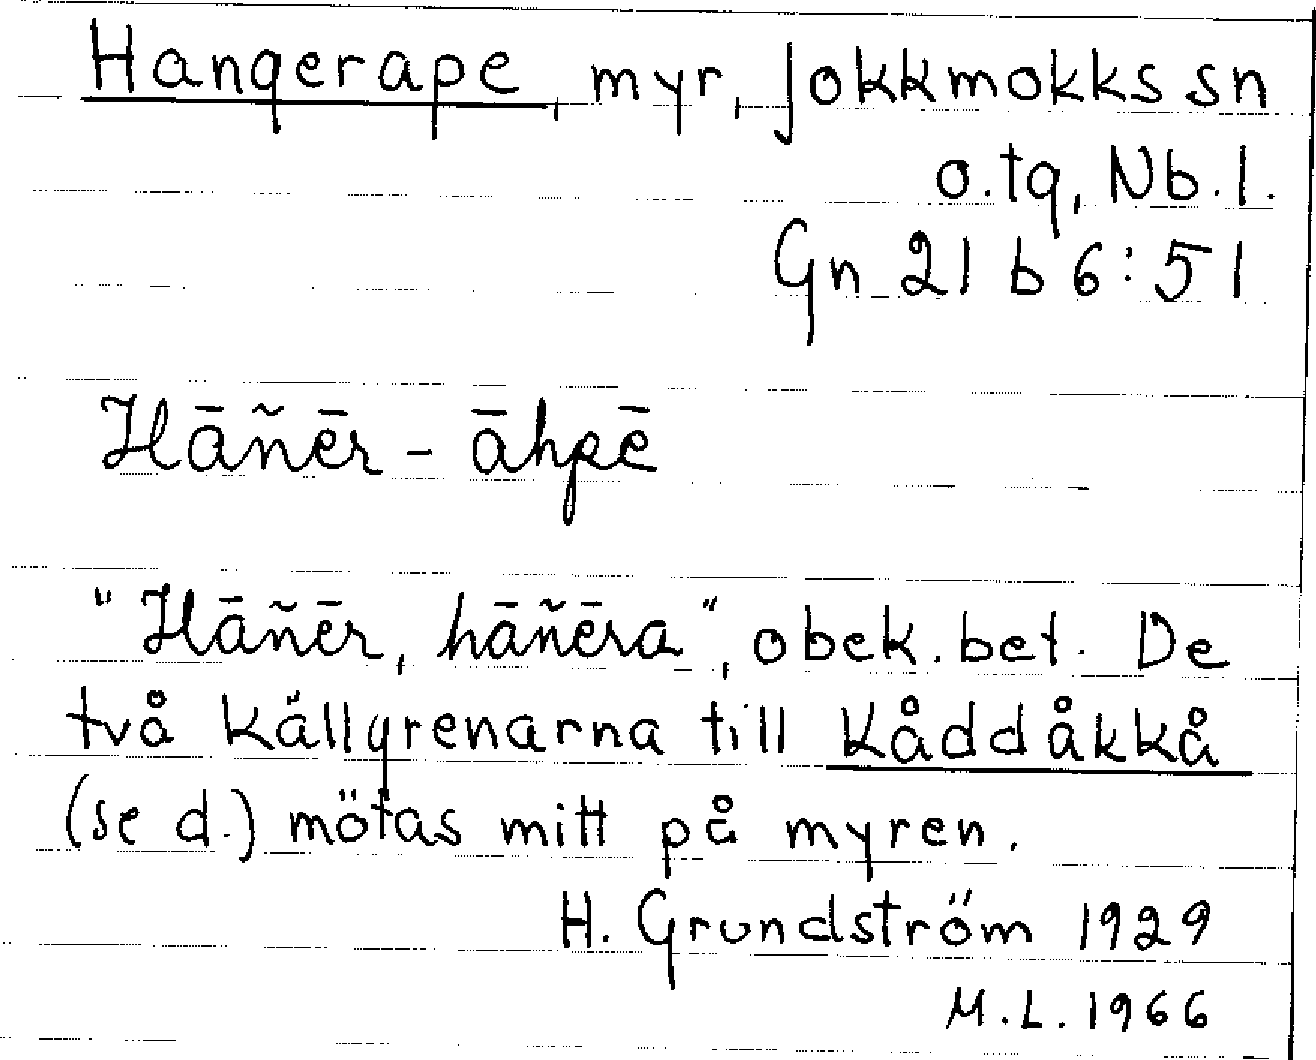 Hangerape, myr, Jokkmokks sn
o. tg, Nb. l.
Gn 21 b 6:51
Hāñ̄ēr - āhpē
"Hāñēr, hāñēra", obek. bet. De
två källgrenarna till Kåddåkkå
(se d.) mötas mitt på myren.
H. Grundström 1929
M.L. 1966